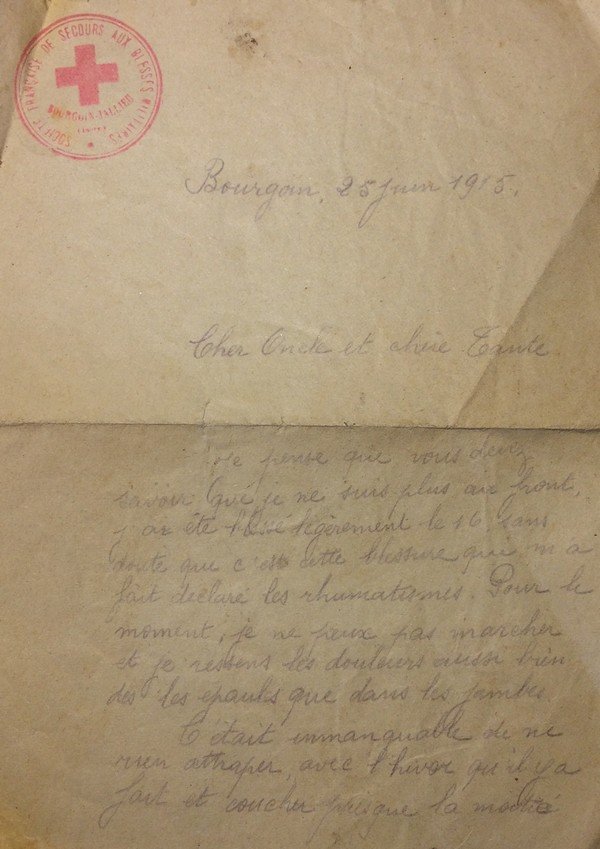 SOCIÉTÉ FRANÇAISE DE SECOURS AUX BLESSÉS MILITAIRES
BOURGOIN-JALLIEU
Bourgoin, 25 juin 1915.
Cher Oncle et chère Tante
Je pense que vous devez
savoir que je ne suis plus au front,
j'ai été blessé légèrement le 16 sans
doute que c'est cette blessure qui m'a
fait déclaré les rhumatismes. Pour le
moment, je ne peux pas marcher
et je ressens les douleurs aussi bien
des les epauls que dans les jambes
C'était immanquable de ne
rien attraper, avec l'hiver qu'il y a
fait et coucher presque la moitié